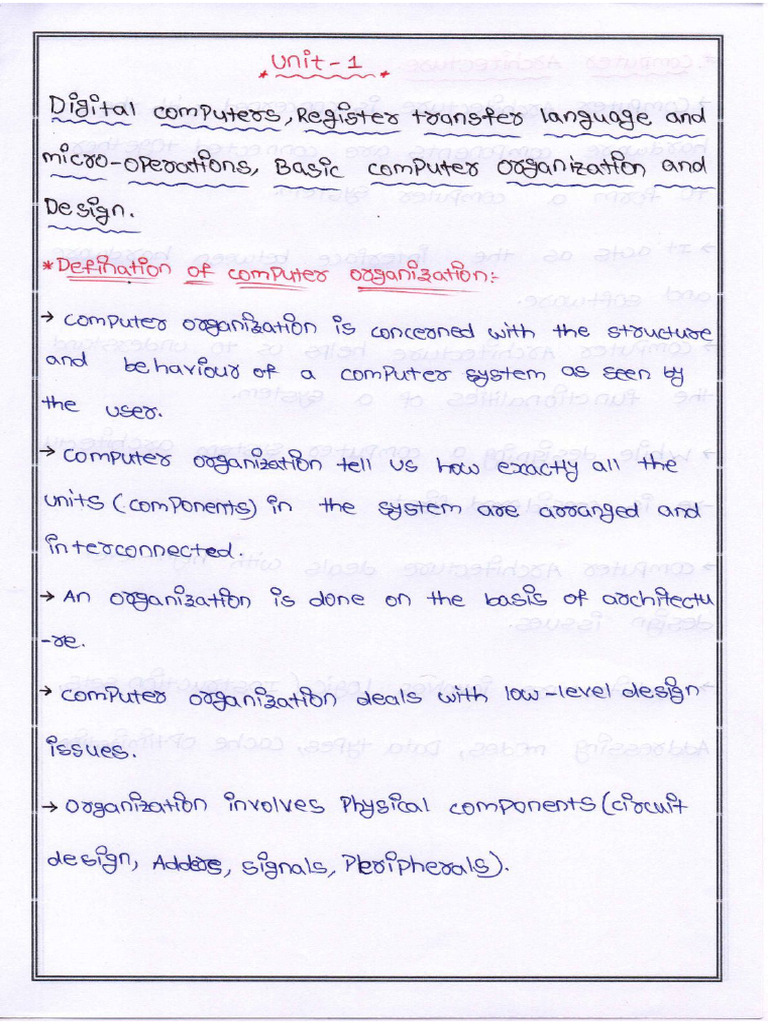 * Unit-1 *
Digital computers, Register transfer language and
micro-operations, Basic computer organization and
Design.
* Defination of computer organization:-
→ computer organization is concerned with the structure
and behaviour of a computer system as seen by
the user.
→ computer organization tell us how exactly all the
units (components) in the system are arranged and
interconnected.
→ An organization is done on the basis of architectu
-re.
→ computer organization deals with low-level design
issues.
→ organization involves Physical components (circuit
design, Adders, signals, Peripherals).